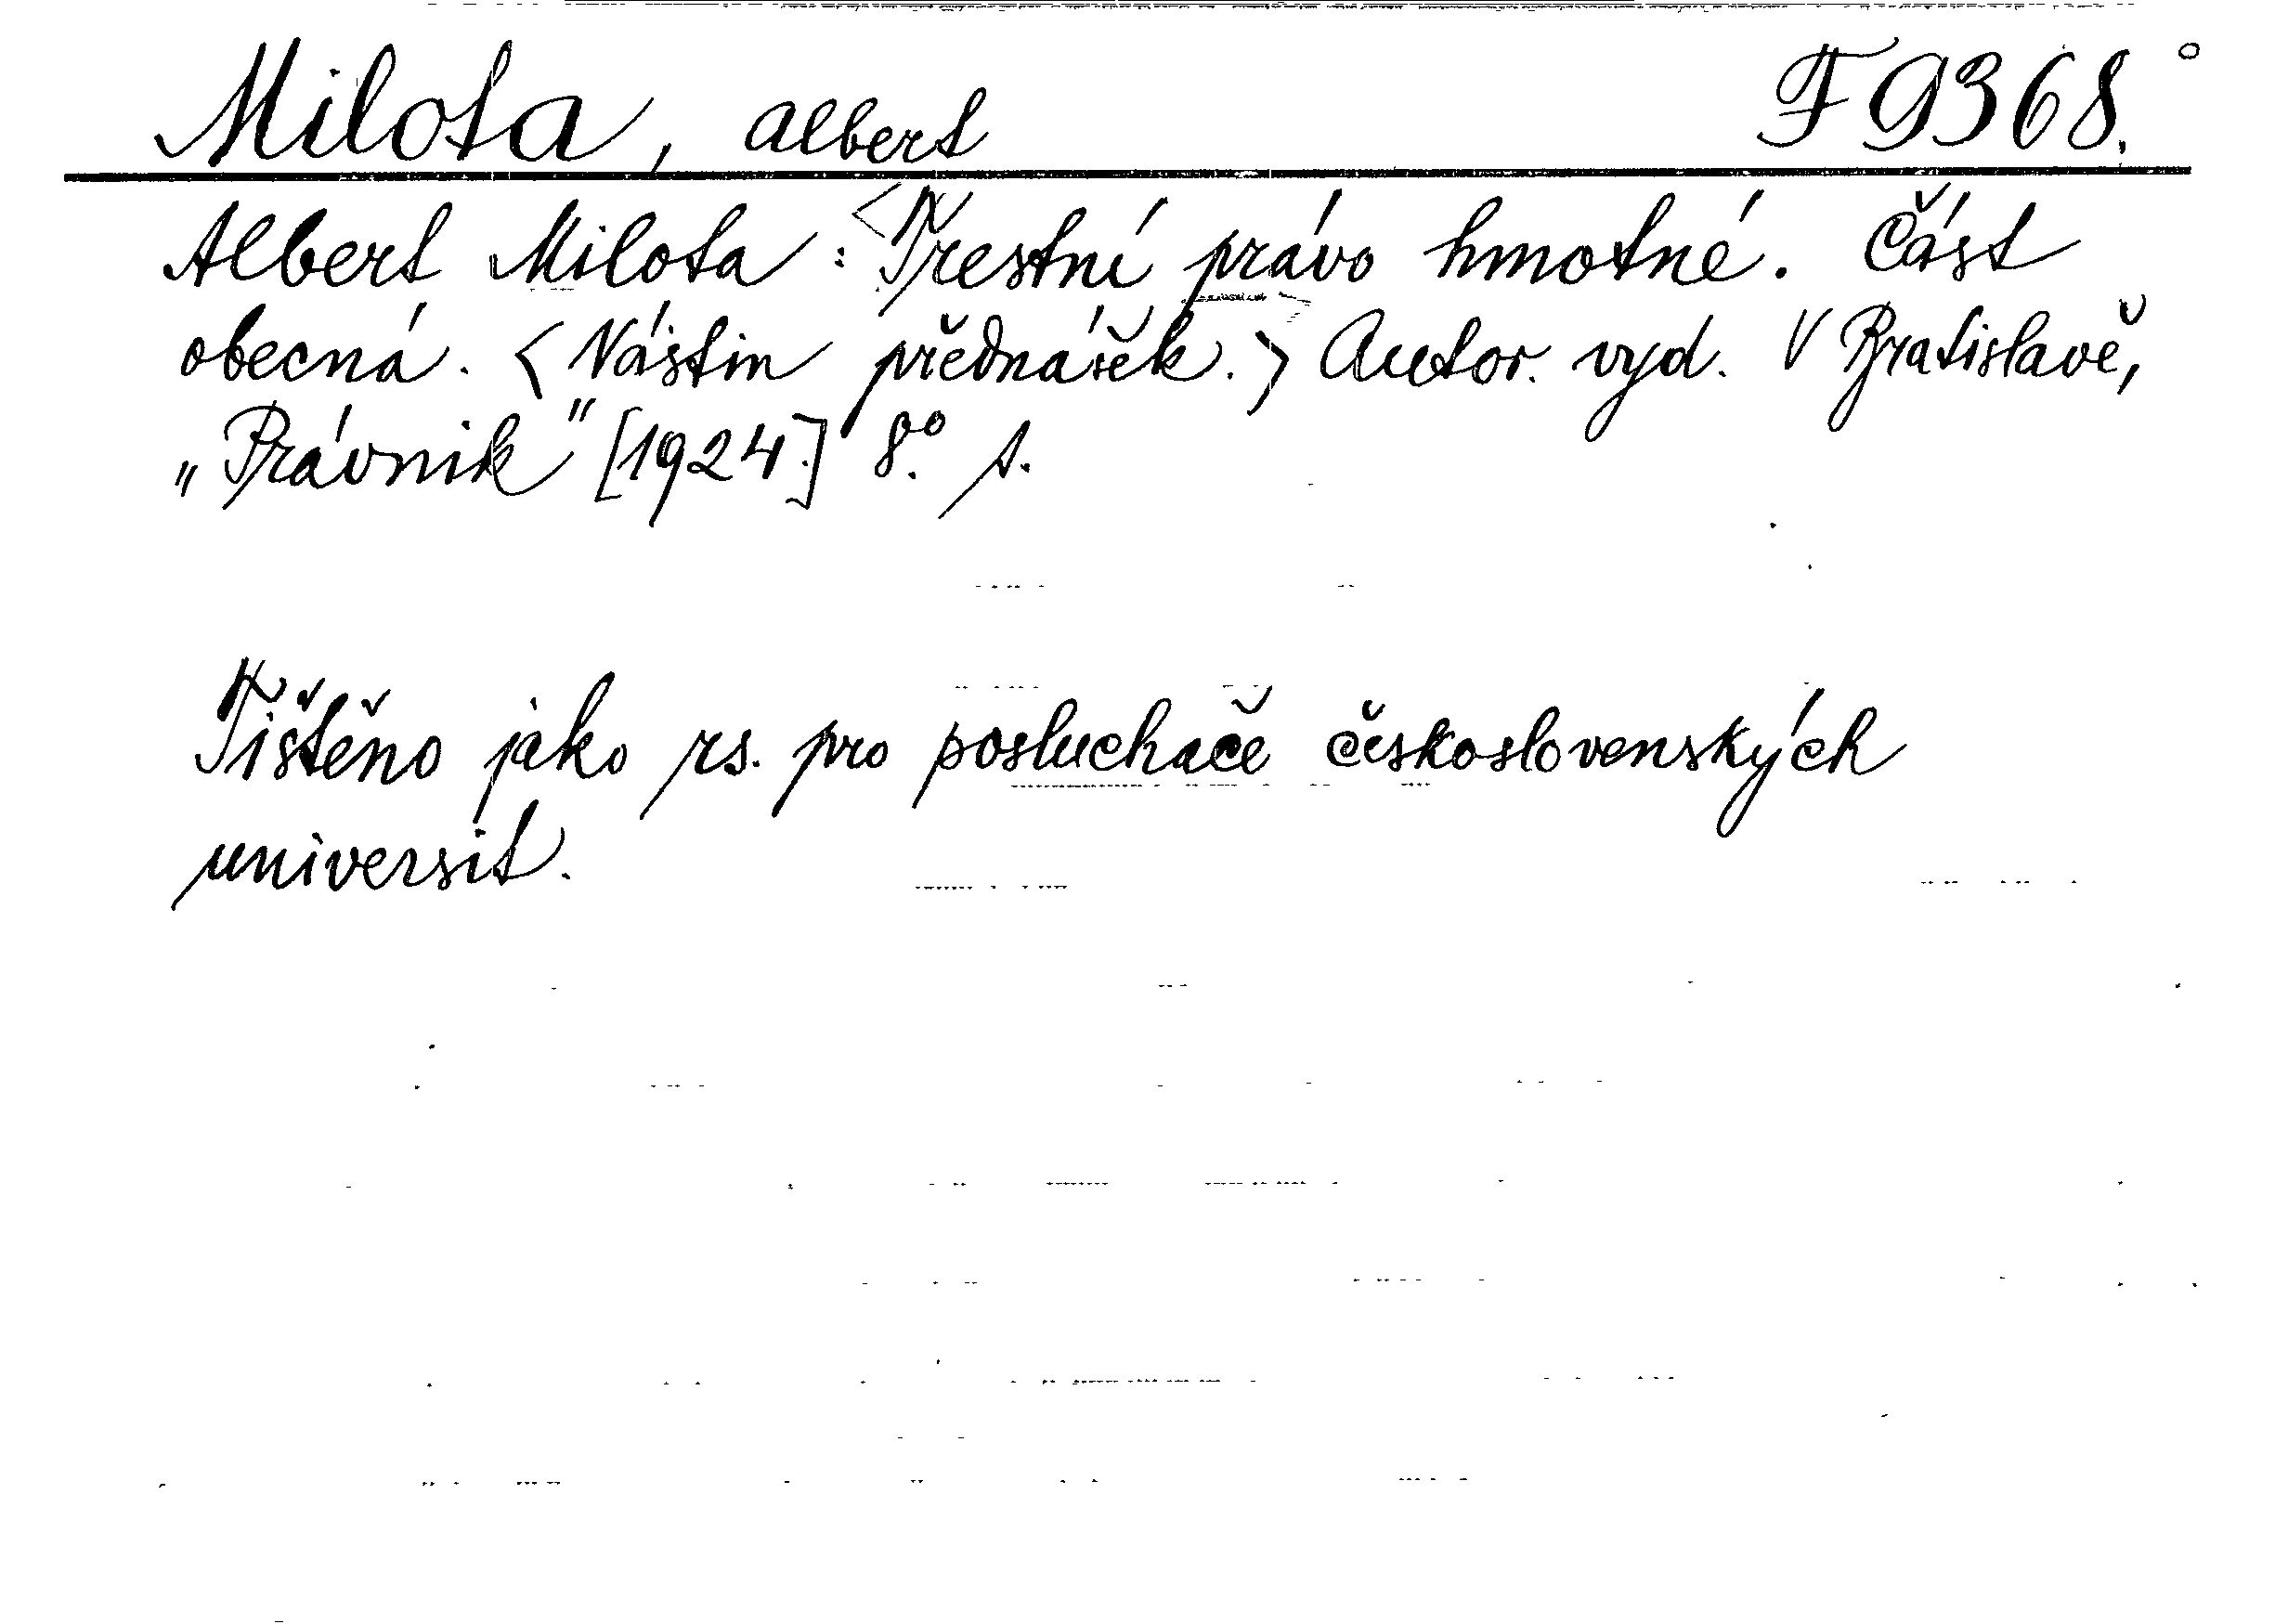 Milota, Albert F 9368.°
Albert Milota: <Trestní právo hmotné. Část
obecná. <Nástin přednášek.> Autor. vyd. V Bratislavě,
„Právnik" [1924.] 8.° s.
Tištěno jako rs. pro posluchače československých
universit.